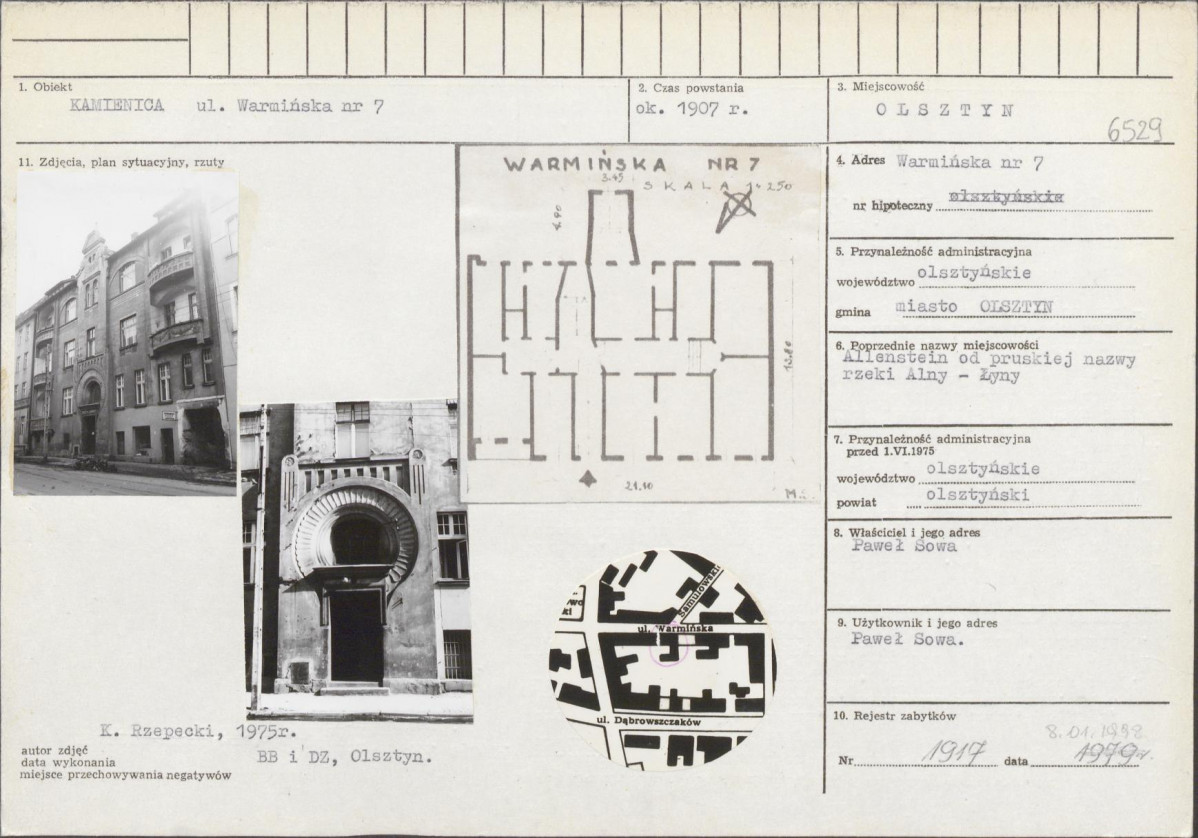 1. Obiekt
KAMIENICA ul. Warmińska nr 7
2. Czas powstania
ok. 1907 r.
3. Miejscowość
OLSZTYN
6529
11. Zdjęcia, plan sytuacyjny, rzuty
WARMIŃSKA NR 7
SKALA 1:250
3.45
4.90
13.80
21.10
4. Adres Warmińska nr 7
nr hipoteczny olsztyńskie
5. Przynależność administracyjna
województwo olsztyńskie
gmina miasto OLSZTYN
6. Poprzednie nazwy miejscowości
Allenstein od pruskiej nazwy
rzeki Alny - Łyny
7. Przynależność administracyjna
przed 1.VI.1975
województwo olsztyńskie
powiat olsztyński
8. Właściciel i jego adres
Paweł Sowa
9. Użytkownik i jego adres
Paweł Sowa.
10. Rejestr zabytków
8.01.1988
Nr 1917 data 1979 r.
Samulowskie
ul. Warmińska
ul. Dąbrowszczaków
K. Rzepecki, 1975r.
BB i DZ, Olsztyn.
autor zdjęć
data wykonania
miejsce przechowywania negatywów